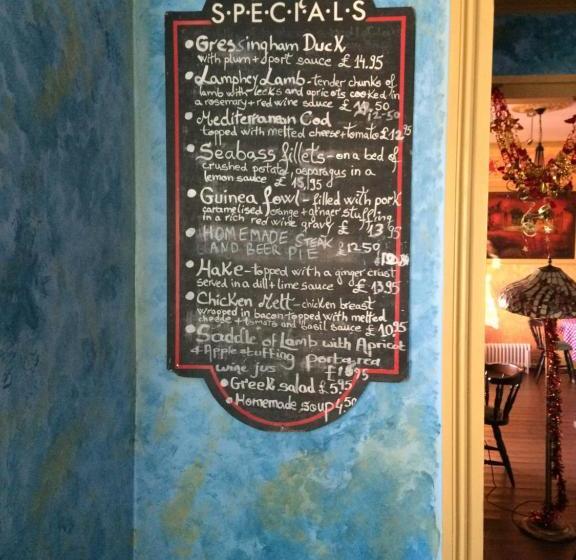 SPECIALS
Gressingham Duck
with plum + port sauce £14.95
Lamphey Lamb - tender chunks of
lamb with leeks and apricots cooked in
a rosemary + red wine sauce
12.50
Mediterranean Cod
topped with melted cheese + tomato £12.95
Seabass fillets - on a bed of
crushed potato, asparagus in a
lemon sauce £15,95
Guinea fowl - filled with pork
caramelised orange + ginger stuffing
in a rich red wine gravy £13.95
HOMEMADE STEAK
AND BEER PIE £12.50
Hake - topped with a ginger crust
served in a dill + lime sauce £13.95
Chicken Melt - chicken breast
wrapped in bacon - topped with melted
cheese + tomato and basil sauce £10.95
Saddle of Lamb with Apricot
+ Apple stuffing
wine jus
Greek salad £5.95
Homemade soup 4.50